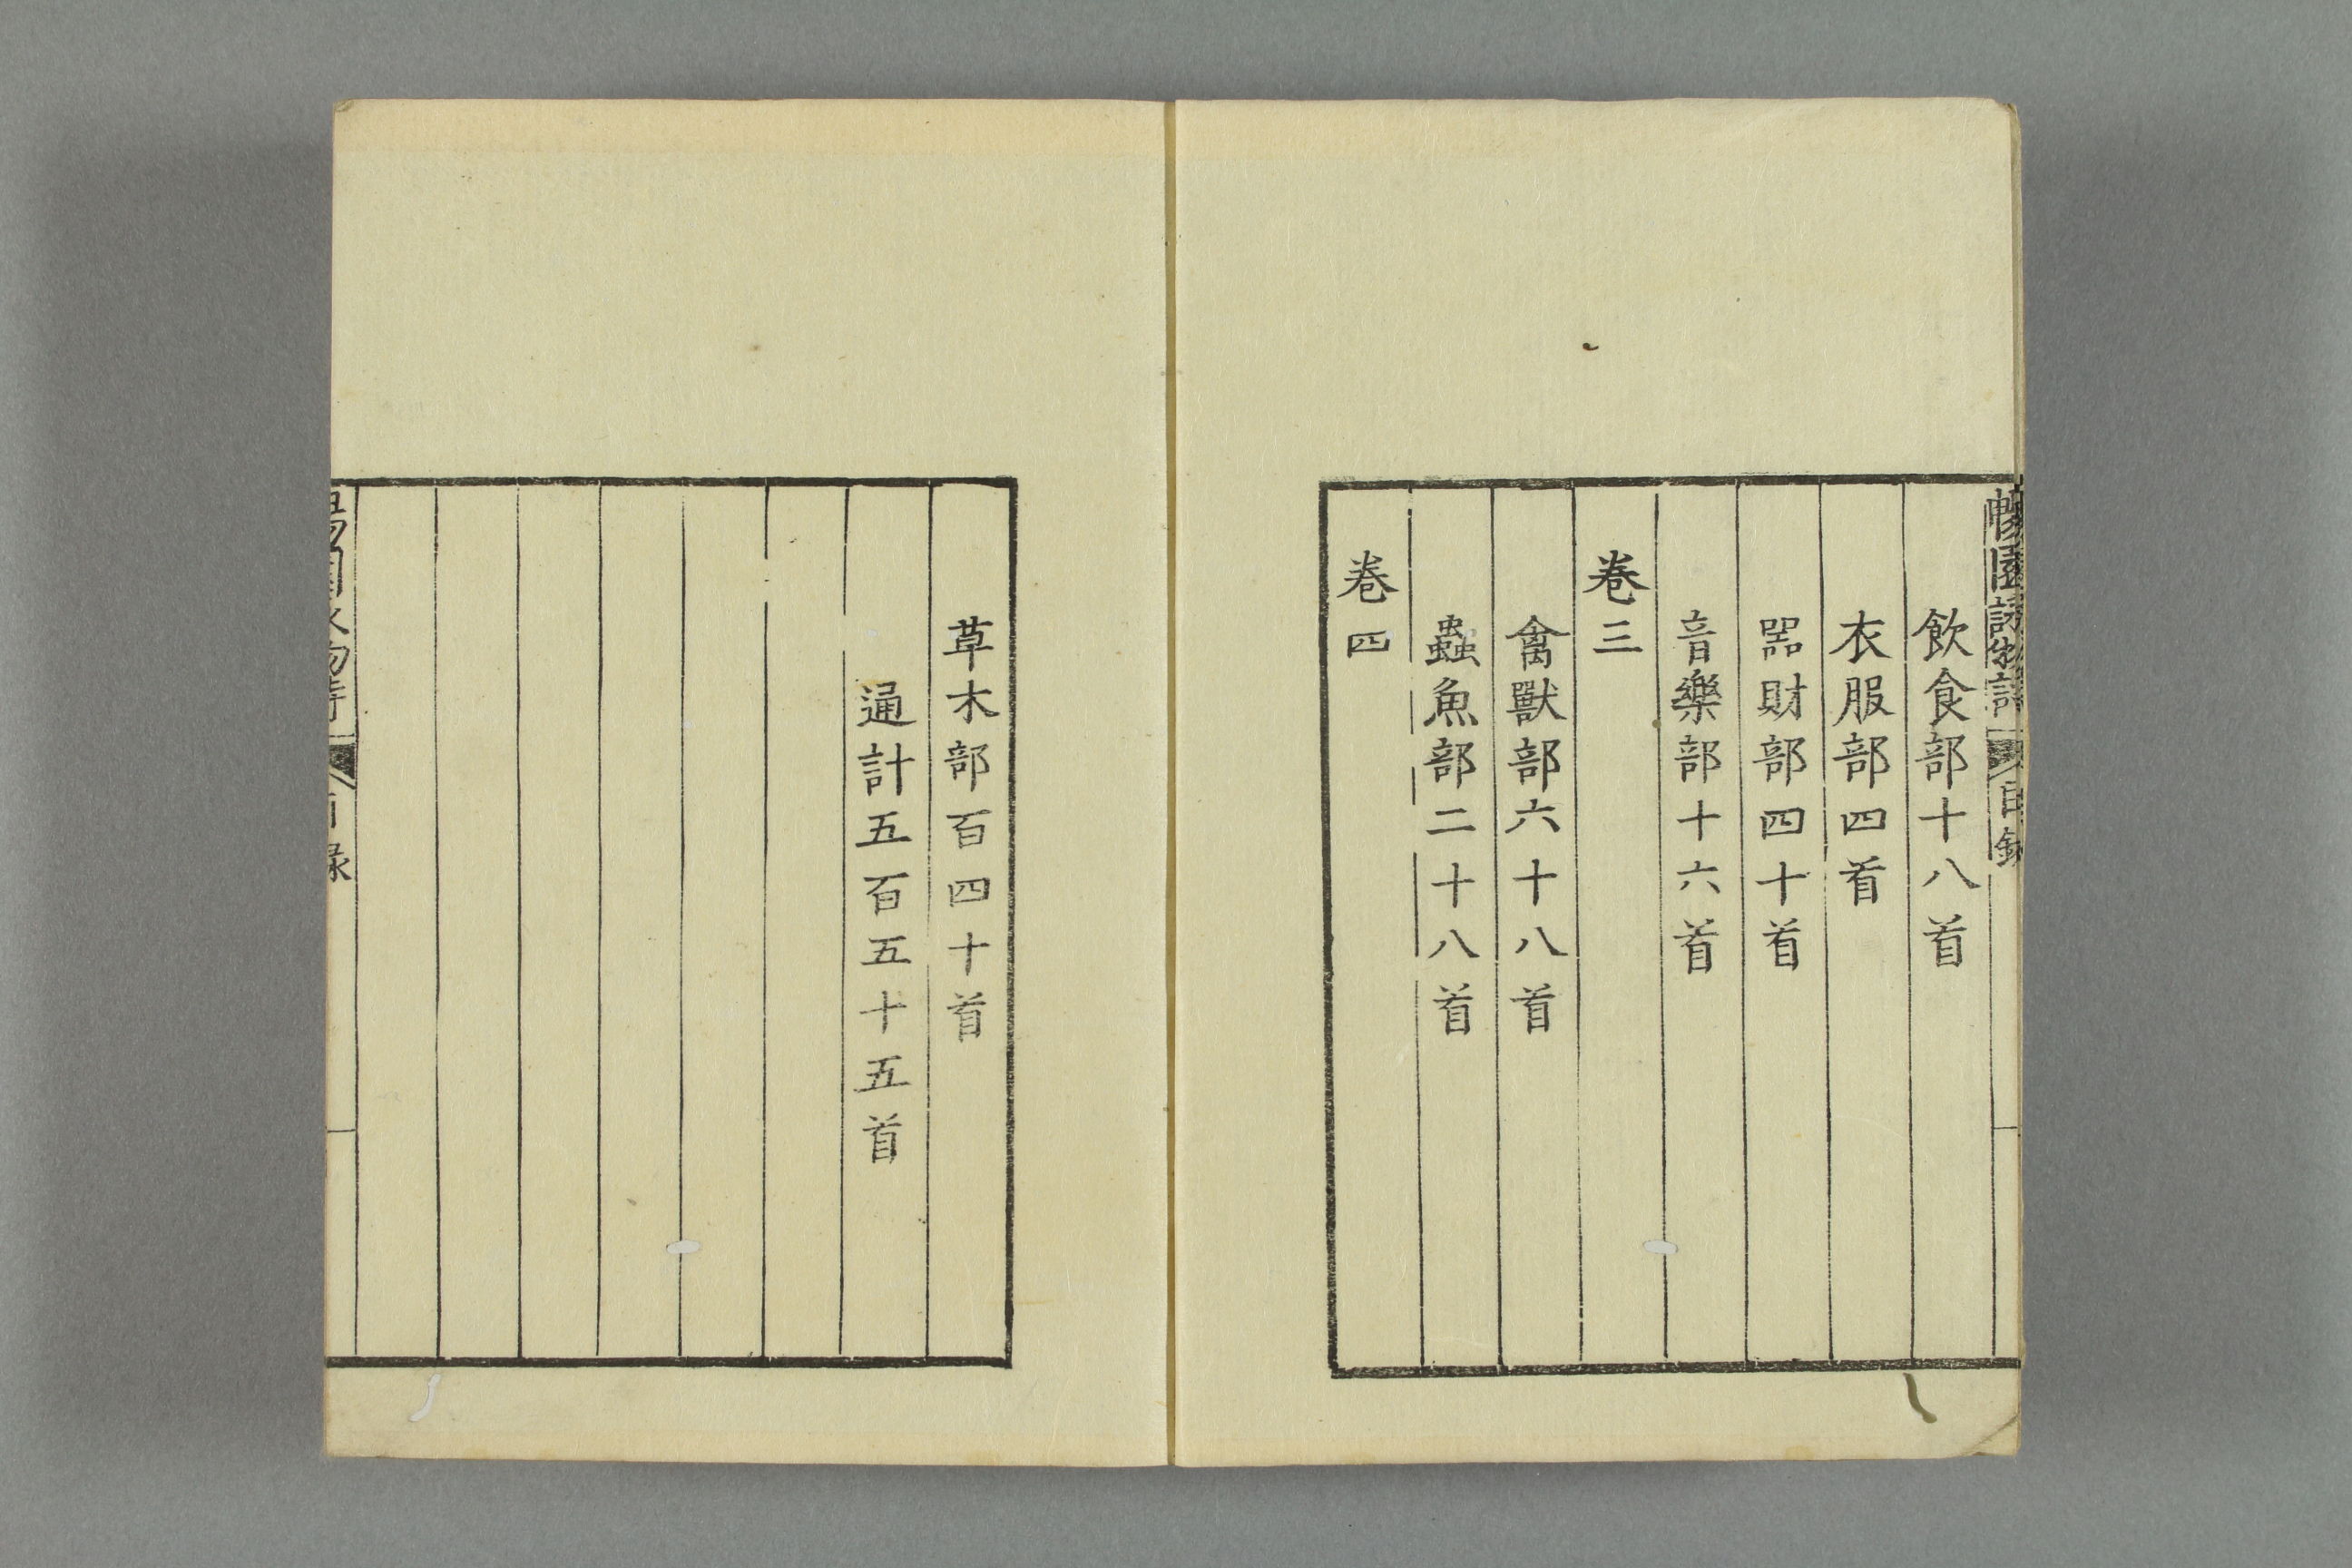 暢園詠物詩 目錄
飲食部十八首
衣服部四首
器財部四十首
音樂部十六首
卷三
禽獸部六十八首
蟲魚部二十八首
卷四
草木部百四十首
通計五百五十五首